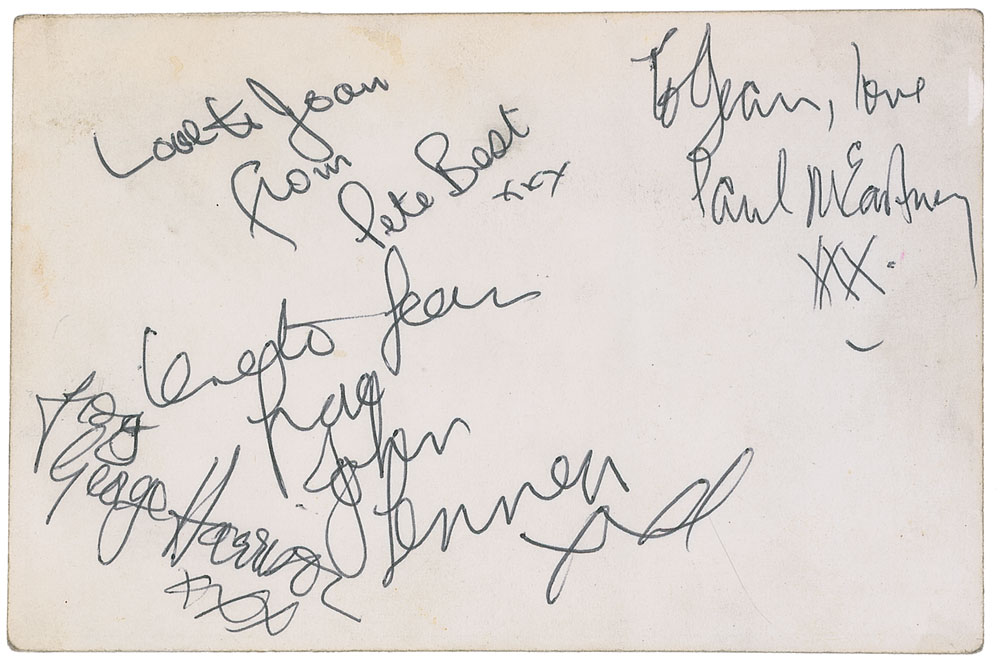 Love to Joan
from
Pete Best
xxx
To Jean, love
Paul McCartney
XXX.
Love to Jean
from
John
Lennon
xx
George Harrison
xxx